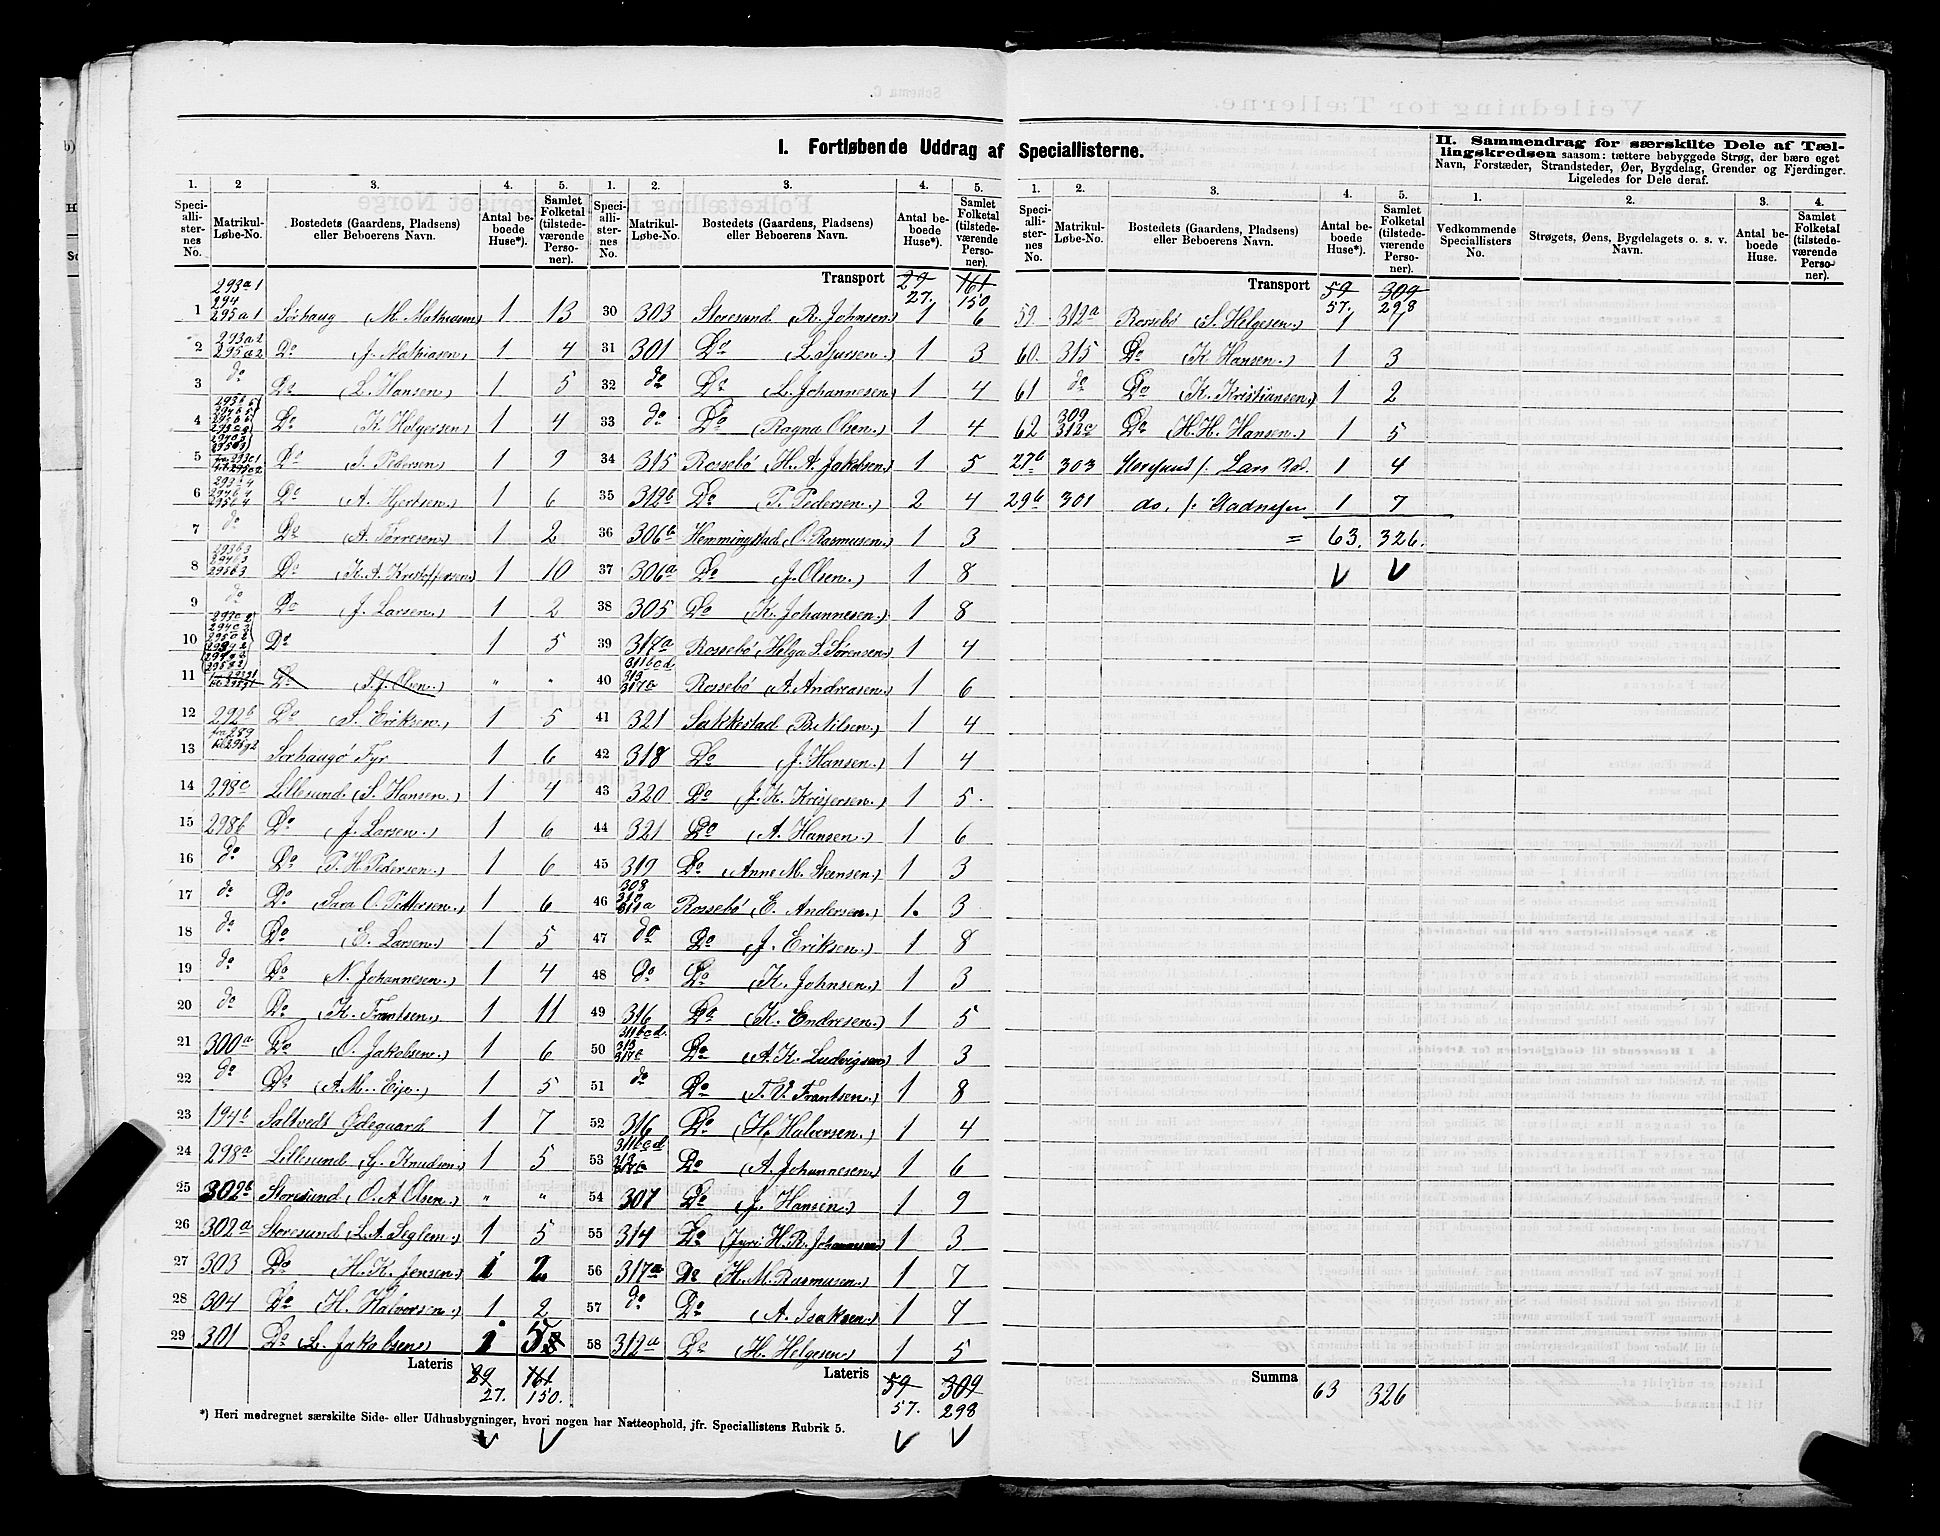 I. Fortløbende Uddrag af Speciallisterne.
II. Sammendrag for særskilte Dele af Tællingskredsen saasom: tættere bebyggede Strøg, der bære eget Navn, Forstæder, Strandsteder, Øer, Bygdelag, Grender og Fjerdinger. Ligeledes for Dele deraf.
1. 2 3. 4. 5. 1. 2. 3. 4. 5. 1. 2. 3. 4. 5. 1. 2. 3. 4.
Speciallisternes No. Matrikul-Løbe-No. Bostedets (Gaardens, Pladsens) eller Beboerens Navn. Antal beboede Huse*). Samlet Folketal (tilstedeværende Personer).
Speciallisternes No. Matrikul-Løbe-No. Bostedets (Gaardens, Pladsens) eller Beboerens Navn. Antal beboede Huse*). Samlet Folketal (tilstedeværende Personer).
Speciallisternes No. Matrikul-Løbe-No. Bostedets (Gaardens, Pladsens) eller Beboerens Navn. Antal beboede Huse*). Samlet Folketal (tilstedeværende Personer).
Vedkommende Speciallisters No. Strøgets, Øens, Bygdelagets o. s. v. Navn. Antal beboede Huse. Samlet Folketal (tilstedeværende Personer).
1 293a1 294 295a1 Sørhaug (M. Mathiasen) 1 13
2 293a2 295a2 Do (J. Mathiasen) 1 4
3 do Do (L. Hansen) 1 5
4 Do (K. Holgersen) 1 4
5 Do (J. Pedersen) 1 9
6 293b4 294b4 295b4 Do (A. Hjertsen) 1 6
7 do Do (A. Tørresen) 1 2
8 293b3 294b3 295b3 Do (K. A. Kristofersen) 1 10
9 do Do (J. Larsen) 1 2
10 Do 1 5
11 Do (S. J. Olsen) " "
12 292b Do (S. Eriksen) 1 5
13 fra 289 til 295g2 Sørhaugø Fyr 1 6
14 298c Lillesund (S. Hansen) 1 4
15 298b Do (J. Larsen) 1 6
16 do Do (P. H. Pedersen) 1 6
17 do Do (Sara O. Pettersen) 1 6
18 do Do (E. Larsen) 1 5
19 do Do (N. Johannesen) 1 4
20 do Do (K. Frantsen) 1 11
21 300a Do (O. Jakobsen) 1 6
22 do Do (A. M. Eije) 1 5
23 194b Saltvedt Ødegaard 1 7
24 298a Lillesund (G. Knudsen) 1 5
25 302b Storesund (O. A. Olsen) " "
26 302a Storesund (L. A. Seglem) 1 5
27 303 Do (H. K. Jensen) 1 2
28 304 Do (H. Halvorsen) 1 2
29 301 Do (L. Jakobsen) 1 5
Lateris 29 161
27. 150.
Transport 29 161
27. 150
30 303 Storesund (R. Johnsen) 1 6
31 301 Do (L. Sjursen) 1 3
32 do Do (L. Johannesen) 1 4
33 do Do (Ragna Olsen) 1 4
34 315 Rossebø (H. A. Jakobsen) 1 5
35 312b Do (P. Pedersen) 2 4
36 306b Hemmingstad (O. Rasmusen) 1 3
37 306a Do (J. Olsen) 1 8
38 305 Do (K. Johannesen) 1 8
39 317a Rossebø (Helga S. Sørensen) 1 4
40 311bcd 313 317c Rossebø (A. Andreasen) 1 6
41 321 Sakkestad (B. Nilsen) 1 4
42 318 Do (J. Hansen) 1 4
43 320 Do (J. K. Kristjersen) 1 5.
44 321 Do (A. Hansen) 1 6
45 319 Do (Anne M. Steensen) 1 3
46 308 310 311a Rossebø (E. Andersen) 1. 3
47 do Do (J. Eriksen) 1 8
48 do Do (K. Johnsen) 1 3
49 316 Do (K. Endresen) 1 5
50 311bcd 313 317c Do (A. K. Ludvigsen) 1 3
51 do Do (T. V. Frantsen) 1 8
52 316 Do (H. Halversen) 1 4
53 311bcd 313 317c Do (A. Johannesen) 1 6
54 307 Do (J. Hansen) 1 9
55 314 Do (Jyri H. R. Johannesen) 1 3
56 317a Do (H. M. Rasmusen) 1 7
57 do Do (A. Isaksen) 1 4
58 312a Do (H. Helgesen) 1 5
Lateris 59 309
57. 298
Transport 59 309
57. 298
59 312a Rossebø (S. Helgesen) 1 7
60. 315 Do (K. Hansen) 1 3
61 do Do (K. Kristiansen) 1 2
62 309 312c Do (H. H. Hansen) 1 5
27b 303 Storesund /: Lars 1 4
29b 301 do. 1 7
= 63. 326.
Summa 63 326
*) Heri medregnet særskilte Side- eller Udhusbygninger, hvori nogen har Natteophold, jfr. Speciallistens Rubrik 5.